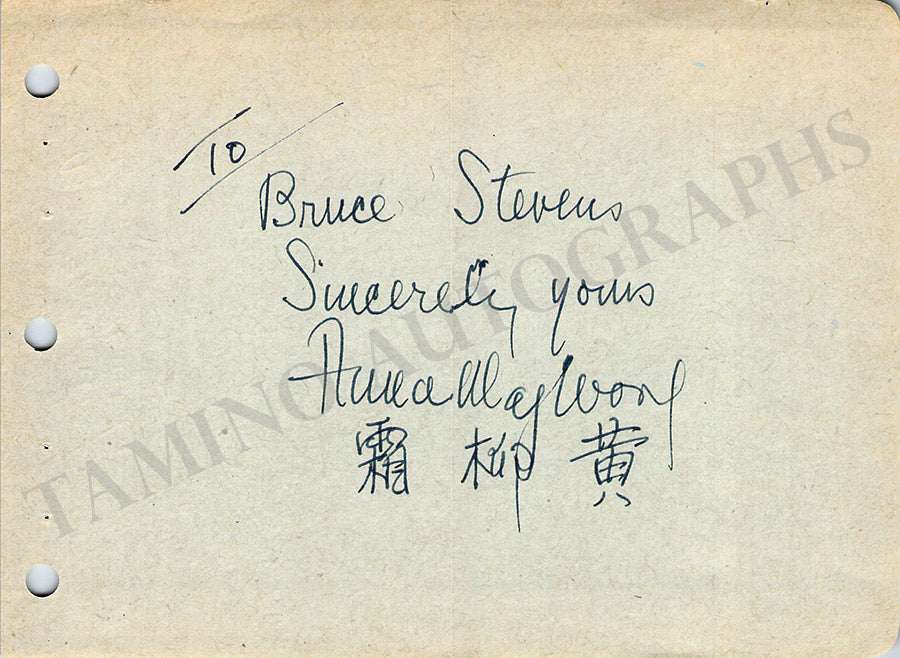 To
Bruce Stevens
Sincerely yours
Anna May Wong
霜柳黄
TAMINO AUTOGRAPHS